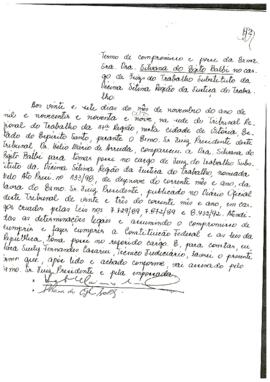 Termo de compromisso e posse da Exma
Sra Dra. Silvana do Egito Balbi no car-
go de Juiz do Trabalho Substituto da
Décima Sétima Região da Justiça do Traba-
lho.
Aos vinte e sete dias do mês de novembro do ano de
mil e novecentos e noventa e nove, na sede do Tribunal Re-
gional do Trabalho da 17ª Região, nesta cidade de Vitória, Es-
tado do Espírito Santo, perante o Exmo. Sr. Juiz Presidente deste
Tribunal, Dr. Hélio Mário de Arruda, compareceu a Dra. Silvana do
Egito Balbi para tomar posse no cargo de Juiz do Trabalho Subs-
tituto da Décima Sétima Região da Justiça do Trabalho, nomeada
pelo Ato Presi. nº do corrente mês e ano, da
lavra do Exmo. Sr. Juiz Presidente, publicado no Diário Oficial
deste Tribunal de vinte e três do corrente mês e ano, em car-
gos criados pelas Leis nos 7.729/89, 7.872/89 e 8.432/92. Atendi-
das as determinações legais e assumindo o compromisso de
cumprir e fazer cumprir a Constituição Federal e as leis da
República, toma posse no referido cargo. E, para constar, eu,
Fernandes Técnico Judiciário, lavrei o presente
termo que, após lido e achado conforme, vai assinado pelo
Exmo. Sr. Juiz Presidente e pela empossada.